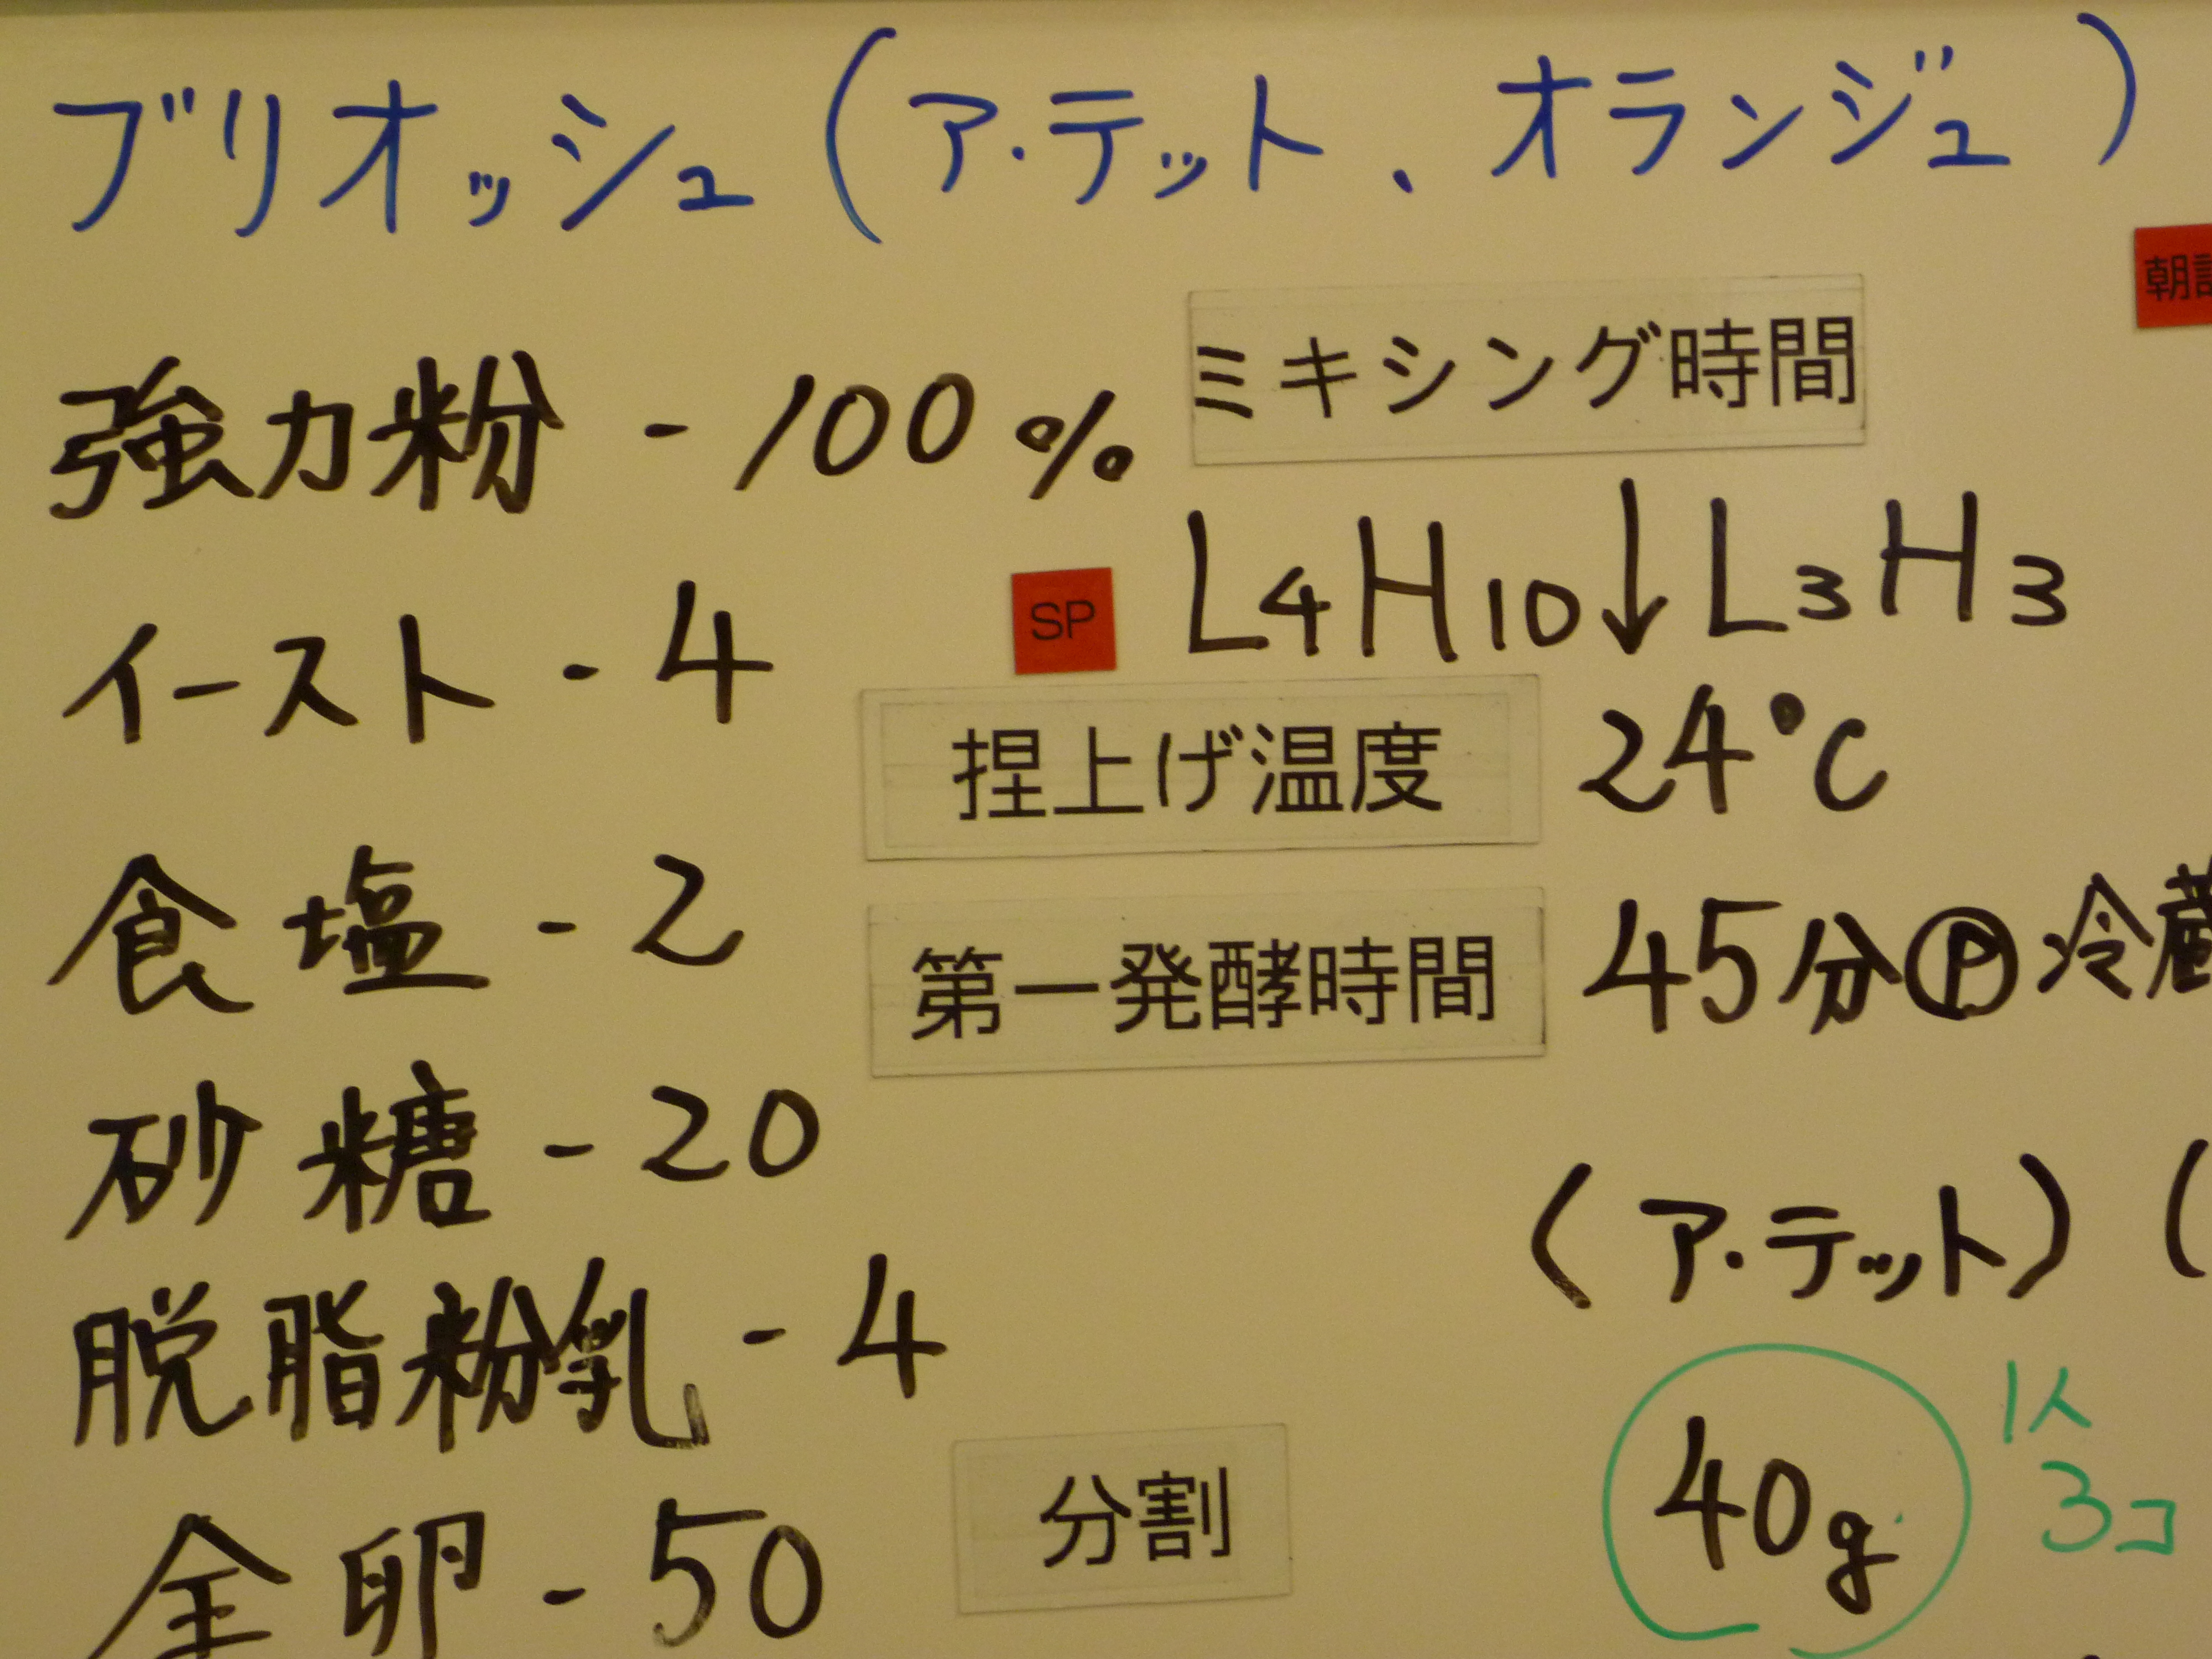 ブリオッシュ(ア・テット、オランジュ)
強力粉 - 100%
ミキシング時間
イースト - 4
SP
L4H10↓L3H3
捏上げ温度 24℃
食塩 - 2
第一発酵時間 45分Ⓟ冷蔵
砂糖 - 20
(ア・テット)(
脱脂粉乳 - 4
1人
3コ
全卵 - 50
分割
40g